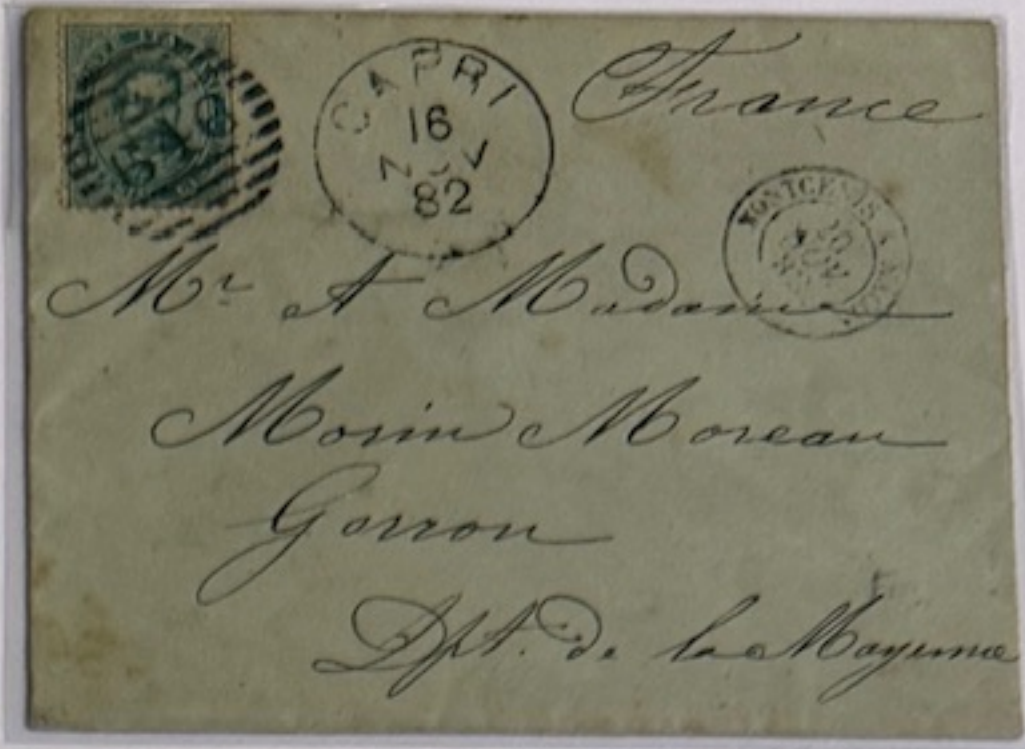 France
CAPRI
16
NOV
82
MONTCENIS A
Mr et Madame
Morin Moreau
Gorron
Dpt. de la Mayenne